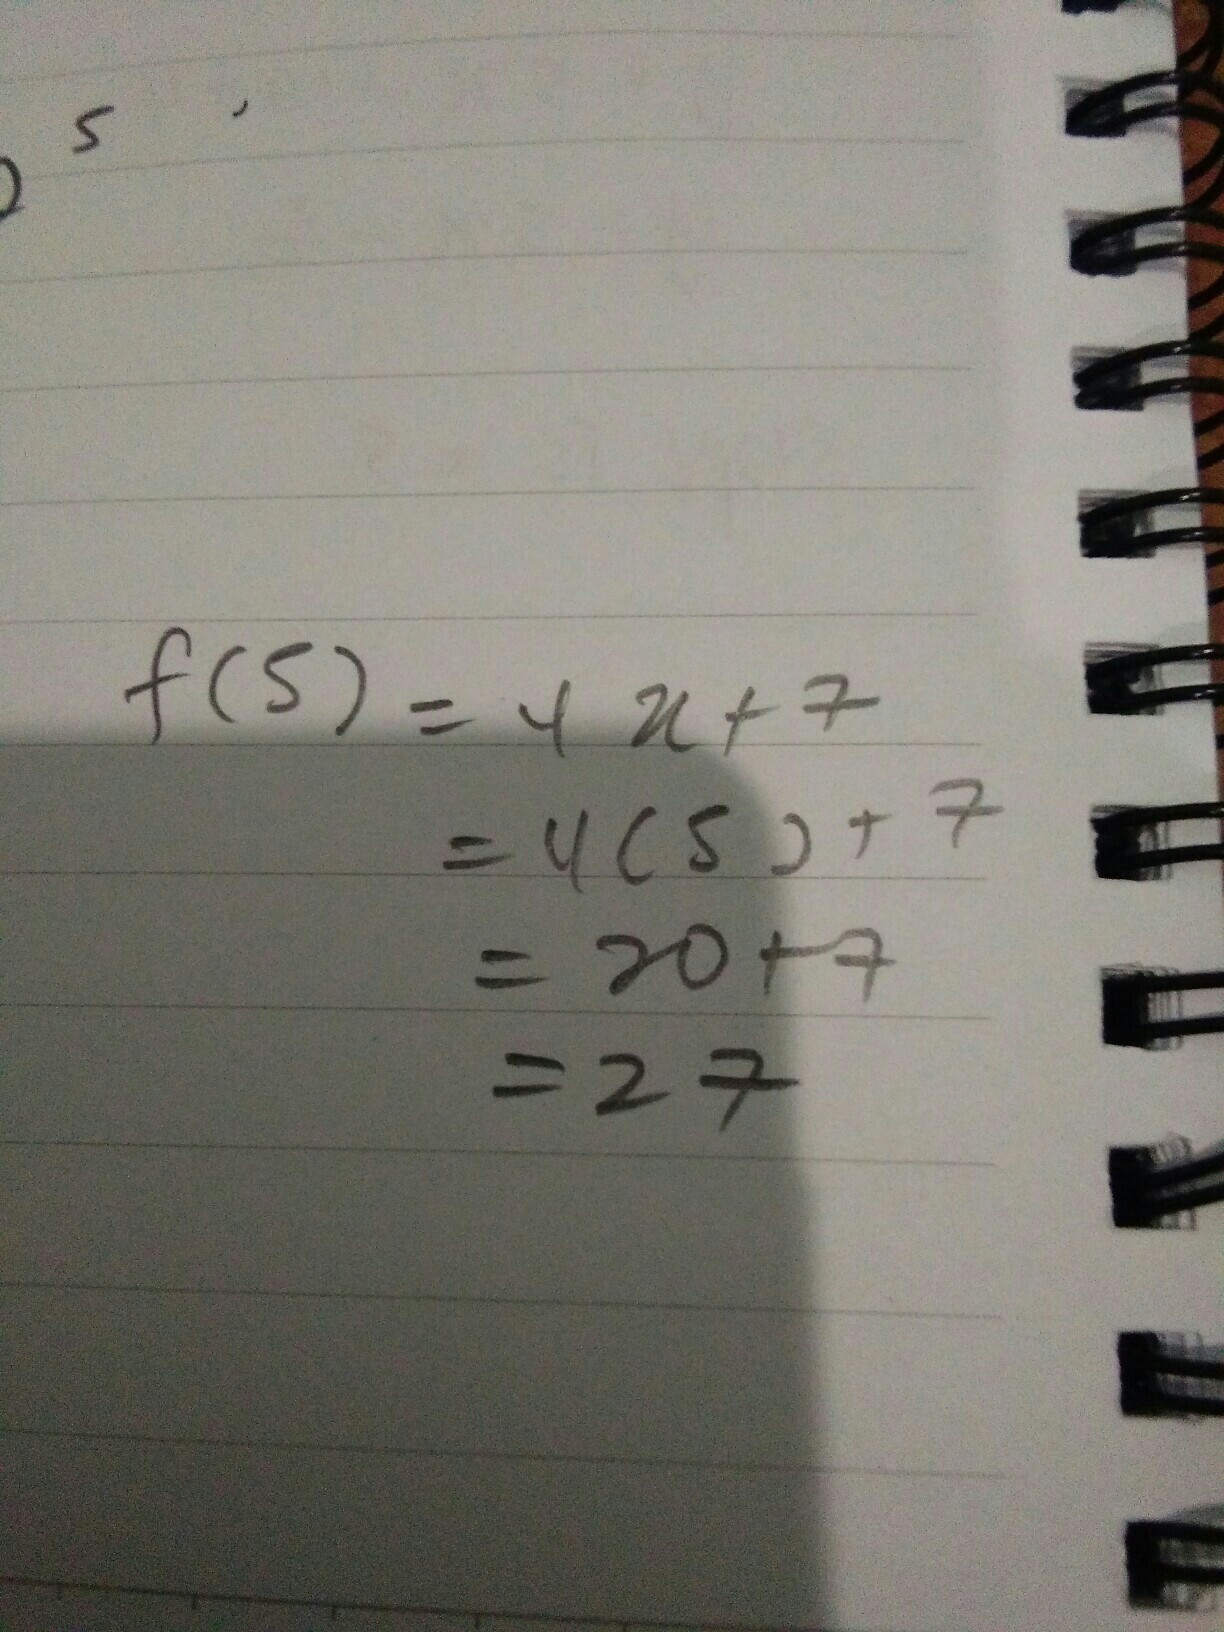 5 ,
f(5) = 4x+7
= 4(5)+7
= 20+7
= 27